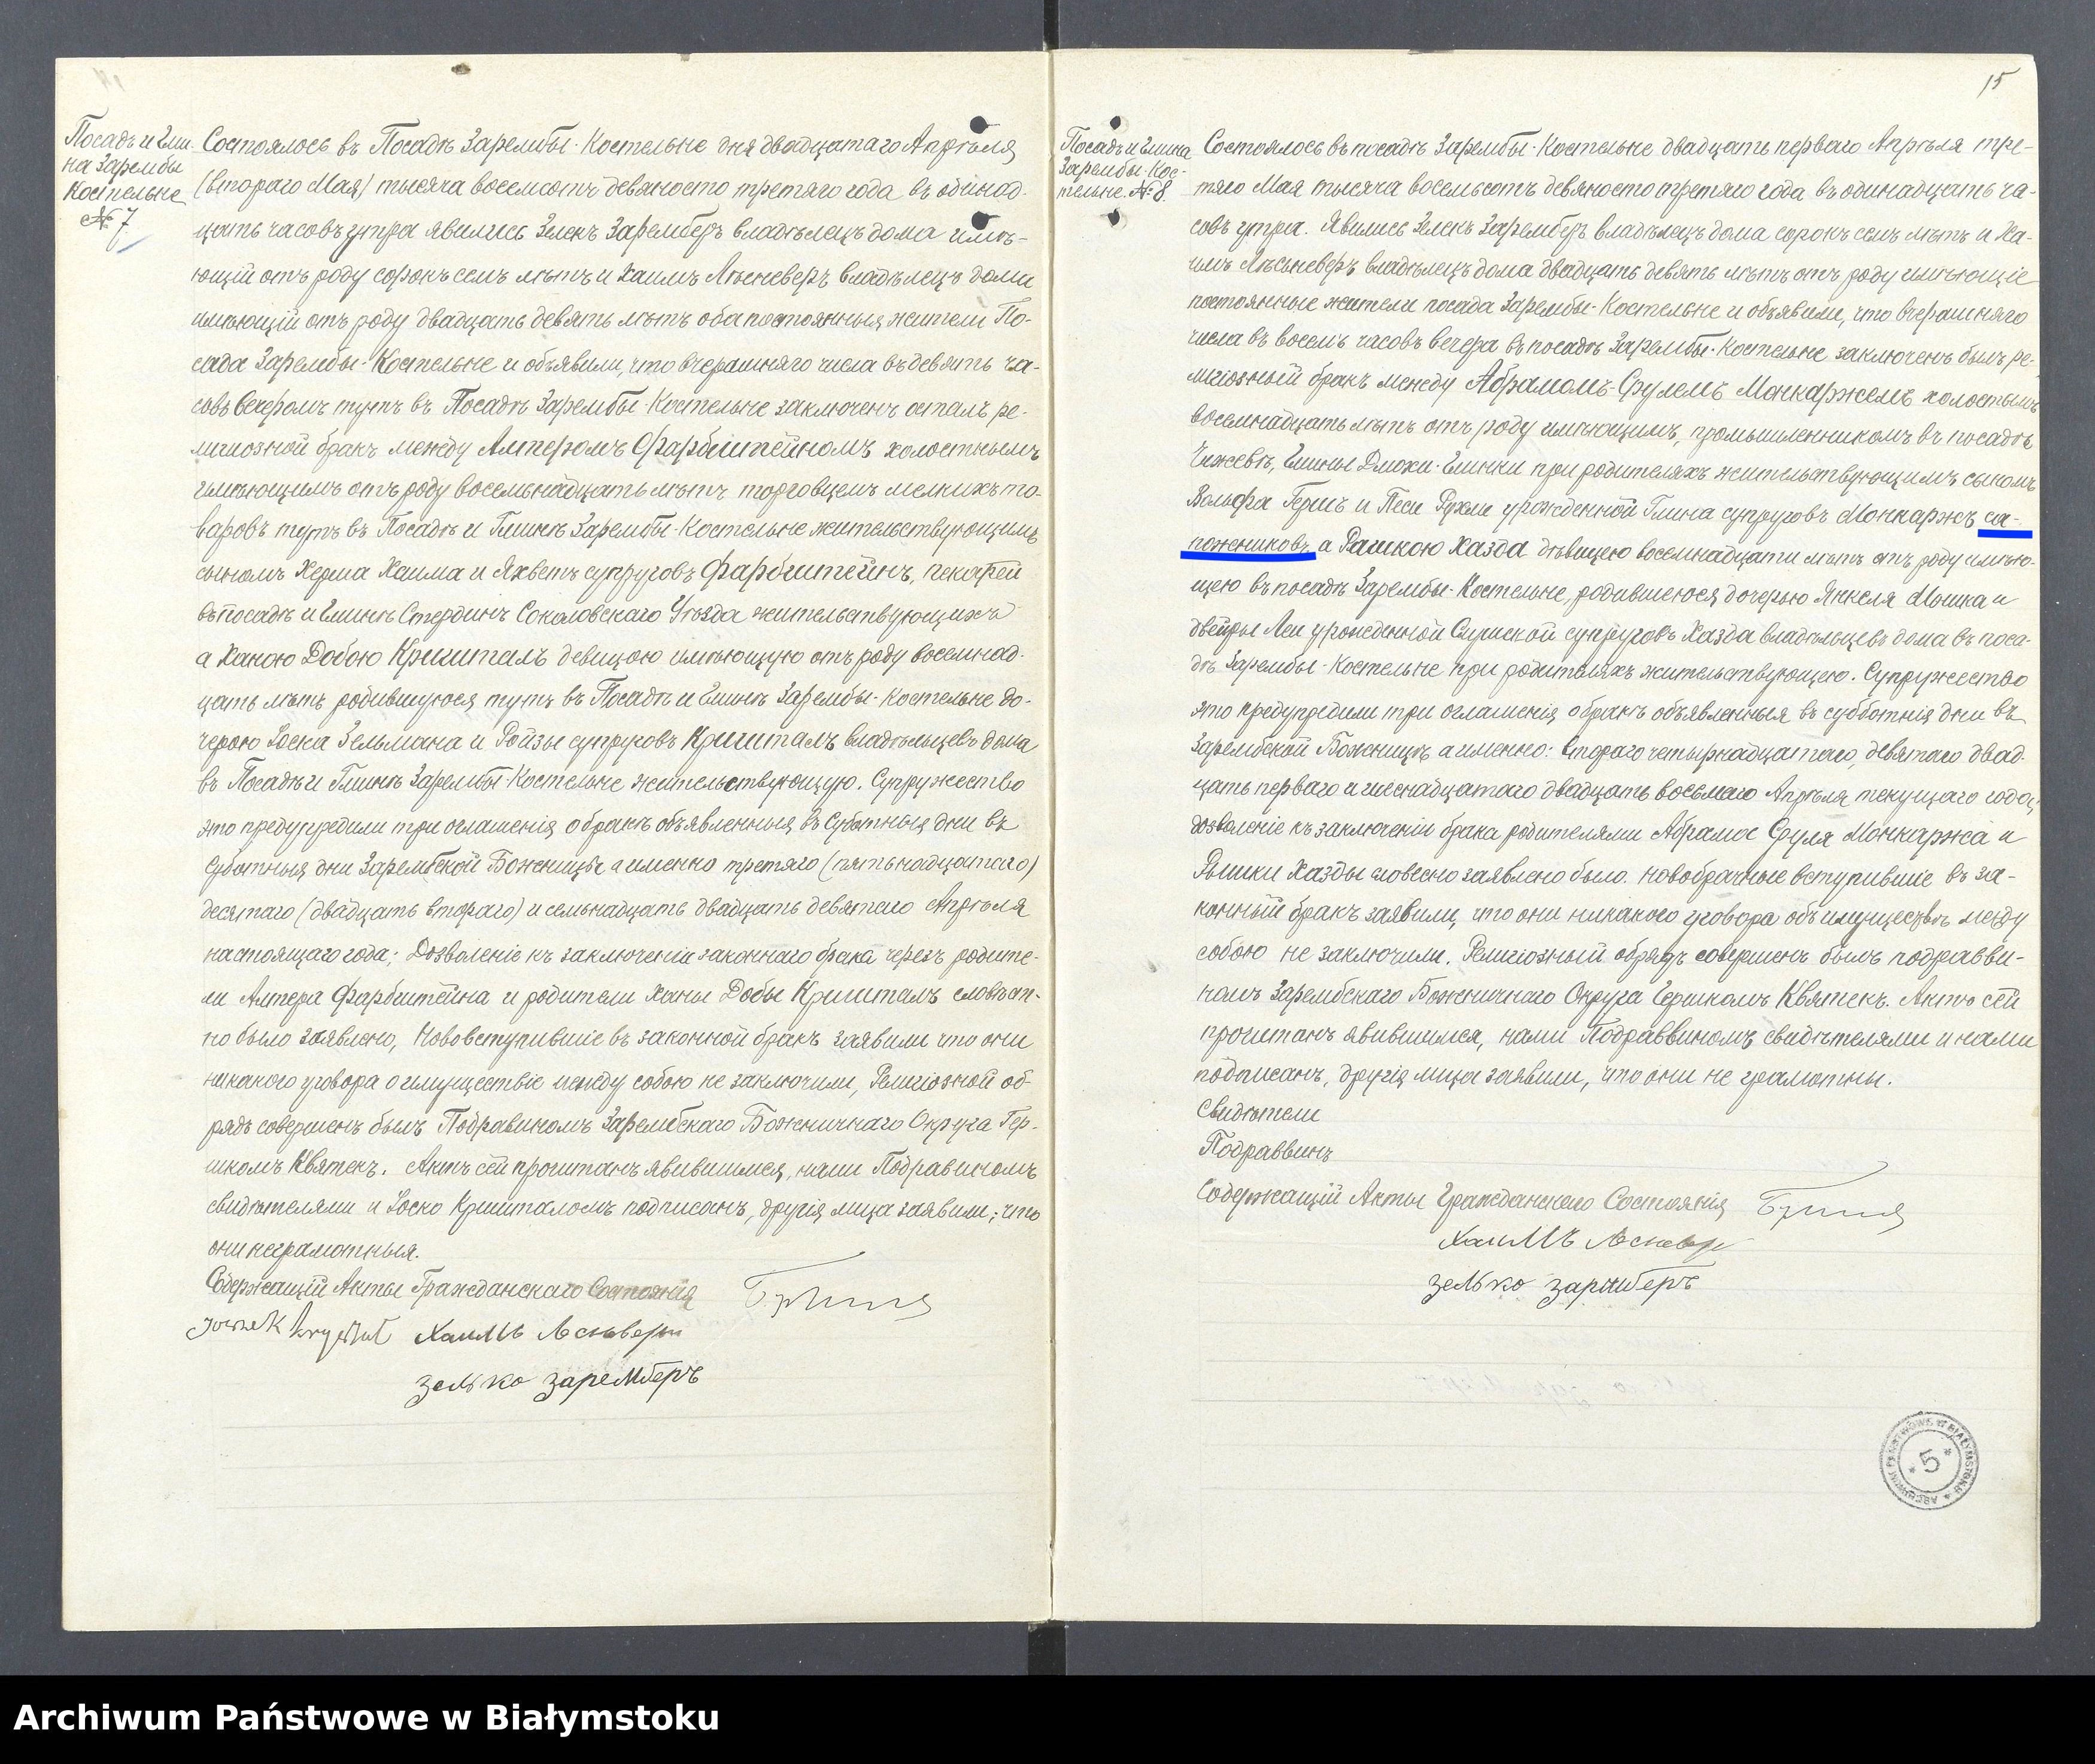 Посадъ и Гми-
на Зарембы
Костельне
№ 7
Состоялось въ Посадѣ Зарембы-Костельне дня двадцатаго Апрѣля
(втораго Мая) тысяча восемсотъ девяносто третяго года въ одинад-
цать часовъ утра явились Зелекъ Заремберъ владѣлецъ дома имѣ-
ющій отъ роду сорокъ семъ лѣтъ и Хаимъ Лѣсневеръ владѣлецъ дома
имѣющій отъ роду двадцать девять лѣтъ оба постоянныя жители По-
сада Зарембы-Костельне и объявили, что вчерашняго числа въ девять ча-
совъ вечеромъ тутъ въ Посадѣ Зарембы-Костельне заключенъ осталъ ре-
лигиозной бракъ между Алтеромъ Фарбштейномъ холостнымъ
имѣющимъ отъ роду восемьнадцать лѣтъ торговцемъ мелкихъ то-
варовъ тутъ въ Посадѣ и Гминѣ Зарембы-Костельне жительствующимъ
сыномъ Херша Хаима и Яхветъ супруговъ Фарбштейнъ, пекарей
въ посадѣ и Гминѣ Стердинъ Соколовскаго Уѣзда жительствующихъ
а Ханою Добою Кришталъ девицою имѣющую отъ роду восемнад-
цать лѣтъ родившуюся тутъ въ Посадѣ и Гминѣ Зарембы-Костельне до-
черою Іоска Зельмана и Ройзы супруговъ Кришталъ владѣльцевъ дома
въ Посадѣ и Гминѣ Зарембы-Костельне жительствующую. Супружество
это предупредили три оглашенія о бракѣ объявленныя въ Суботныя дни въ
Суботныя дни Зарембской Божницѣ а именно третяго (пятьнадцатаго)
десятаго (двадцать втораго) и семьнадцать двадцать девятаго Апрѣля
настоящаго года; Дозволеніе къ заключенію законнаго брака черезъ родите-
ли Алтера Фарбштейна и родители Ханы Добы Кришталъ словѣсн-
но было заявлено, Нововступившіе въ законной бракъ заявили что они
никакого уговора о имуществіе между собою не заключили, Религіозной об-
рядъ совершенъ былъ Подравиномъ Зарембскаго Божничнаго Округа Гер-
шкомъ Квятекъ. Актъ сей прочитанъ явившимся, нами Подравиномъ
свидѣтелями и Іоско Кришталомъ подписанъ, другія лица заявили, что
они неграмотныя.
Содержащій Акты Гражданскаго Состоянія
Хаимъ Лесневеръ
Зелько Заремберъ
15
Посадъ и Гмина
Зарембы-Кос-
тельне № 8.
Состоялось въ посадѣ Зарембы-Костельне двадцать перваго Апрѣля тре-
тяго Мая тысяча восемьсотъ девяносто третяго года въ одинадцать ча-
совъ утра. Явились Зелекъ Заремберъ владѣлецъ дома сорокъ семъ лѣтъ и Ха-
имъ Лѣсьневеръ владѣлецъ дома двадцать девять лѣтъ отъ роду имѣющіе
постоянные жители посада Зарембы-Костельне и объявили, что вчерашняго
числа въ восемъ часовъ вечера въ посадѣ Зарембы-Костельне заключенъ былъ ре-
лигіозный бракъ между Абрамомъ-Срулемъ Монкаржемъ холостымъ
восемнадцать лѣтъ отъ роду имѣющимъ, промышленникомъ въ посадѣ
Чижевѣ, Гмины Дмохи-Глинки при родителяхъ жительствующимъ сыномъ
Вольфа Гершъ и Песи Рухли урожденной Глина супруговъ Монкаржъ са-
пожниковъ, а Рашкою Хазда дѣвицею восемнадцати лѣтъ отъ роду имѣю-
щею въ посадѣ Зарембы-Костельне, родившеюся дочерью Янкеля Мошка и
Двейры Леи урожденной Сушской супруговъ Хазда владѣльцевъ дома въ поса-
дѣ Зарембы-Костельне при родителяхъ жительствующею. Супружество
это предупредили три оглашенія о бракѣ объявленныя въ субботнія дни въ
Зарембской Божницѣ а именно: втораго четырнадцатаго, девятаго двад-
цать перваго и шеснадцатаго двадцать восьмаго Апрѣля текущаго года,
дозволеніе къ заключеніи брака родителями Абрама Сруля Монкаржа и
Рышки Хазды словесно заявлено было. Новобрачные вступившіе въ за-
конный бракъ заявили, что они никакого уговора объ имуществѣ между
собою не заключили. Религіозный обрядъ совершенъ былъ подравви-
номъ Зарембскаго Божничнаго Округа Гершкомъ Квятекъ. Актъ сей
прочитанъ явившимся, нами Подраввиномъ свидѣтелями и нами
подписанъ, другія лица заявили, что они не грамотны.
Свидѣтели
Подраввинъ
Содержащій Акты Гражданскаго Состоянія
Хаимъ Лесневеръ
Зелько Заремберъ
ARCHIWUM PAŃSTWOWE W BIAŁYMSTOKU
* 5 *
Archiwum Państwowe w Białymstoku